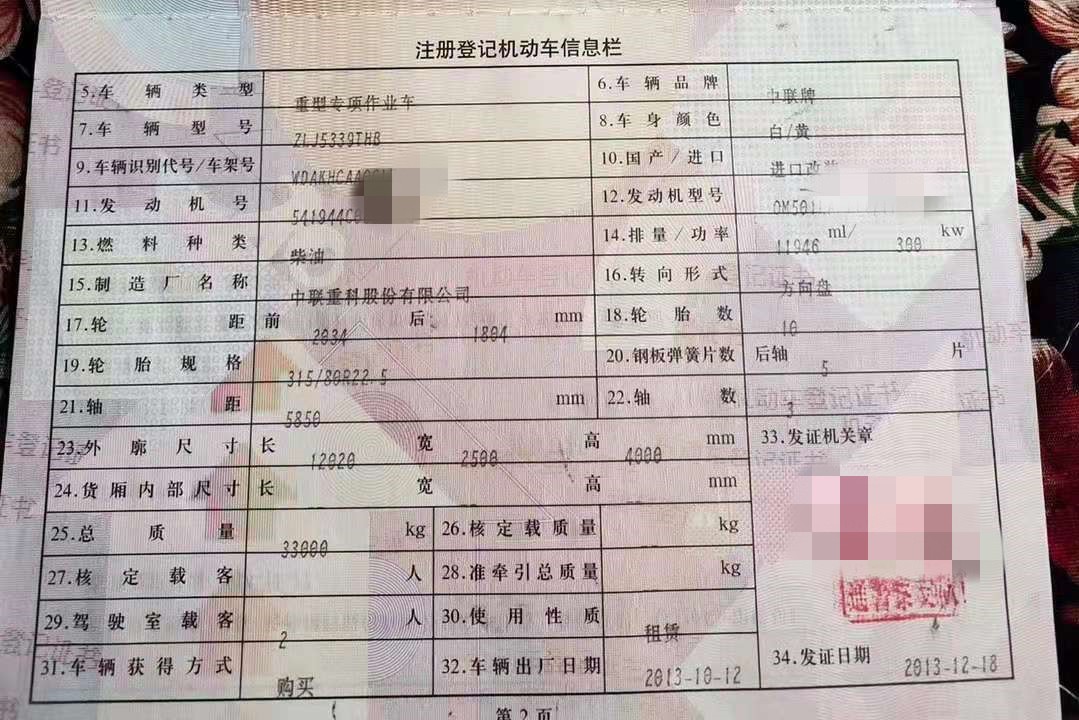 注册登记机动车信息栏
5.车辆类型 重型专项作业车 6.车辆品牌 中联牌
7.车辆型号 ZLJ5339THB 8.车身颜色 白/黄
9.车辆识别代号/车架号 WDAKHCAA 10.国产/进口 进口改装
11.发动机号 541944C 12.发动机型号 OM501
13.燃料种类 柴油 14.排量/功率 11946 ml/ 300 kw
15.制造厂名称 中联重科股份有限公司 16.转向形式 方向盘
17.轮距 前 2034 后 1804 mm 18.轮胎数 10
19.轮胎规格 315/80R22.5 20.钢板弹簧片数 后轴 5 片
21.轴距 5850 mm 22.轴数 3
23.外廓尺寸 长 12020 宽 2500 高 4000 mm 33.发证机关章
24.货厢内部尺寸 长 宽 高 mm
25.总质量 33000 kg 26.核定载质量 kg
27.核定载客 人 28.准牵引总质量 kg
29.驾驶室载客 2 人 30.使用性质 租赁
31.车辆获得方式 购买 32.车辆出厂日期 2013-10-12 34.发证日期 2013-12-18
第2页